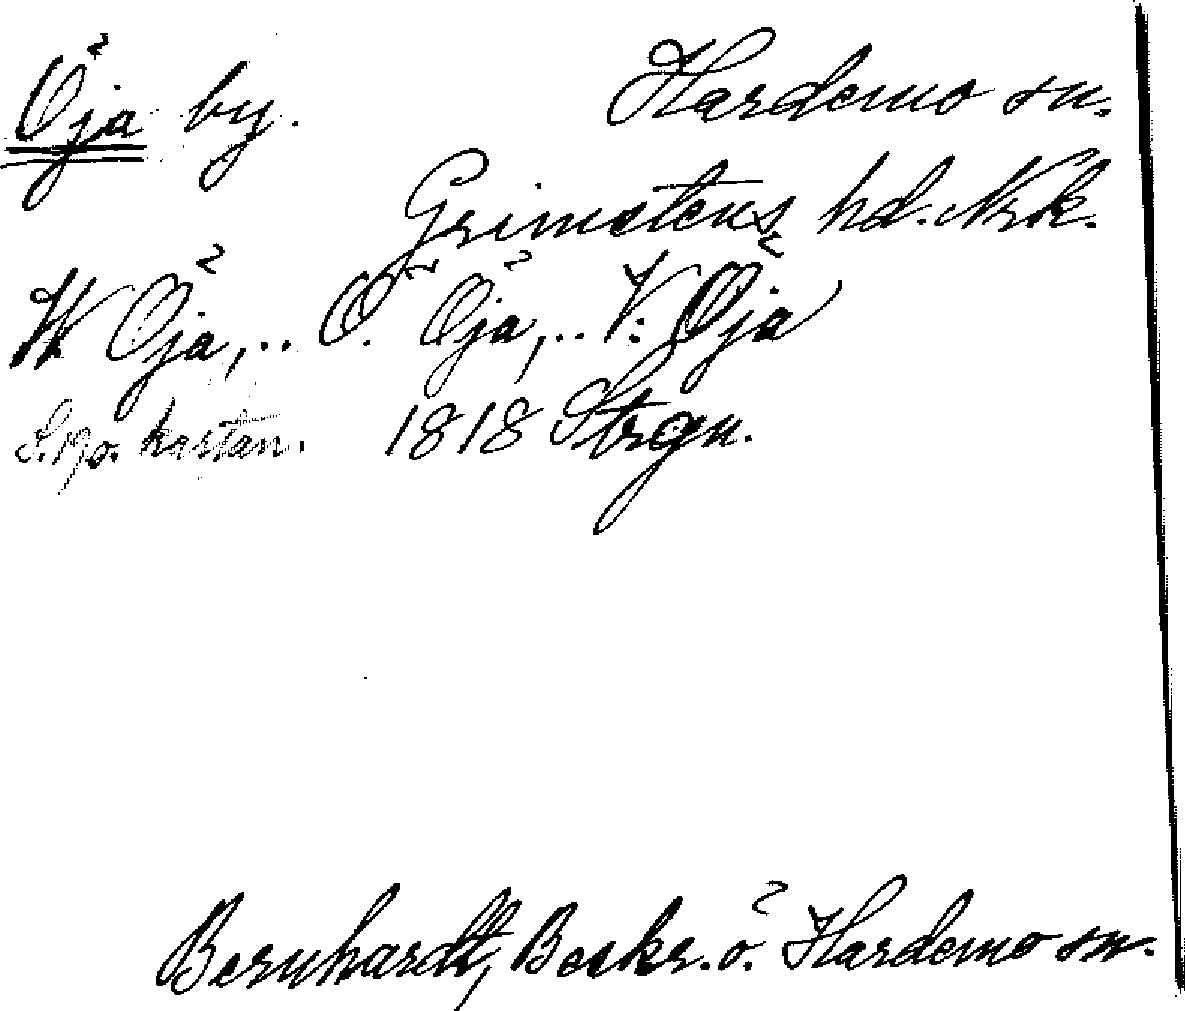 Öja by. Hardemo sn.
Grimstens hd. Nrk.
Öja,.. Ö. Öja,.. V. Öja
S. 190. kartan. 1818 Strgn.
Bernhardt, Beskr. ö. Hardemo sn.